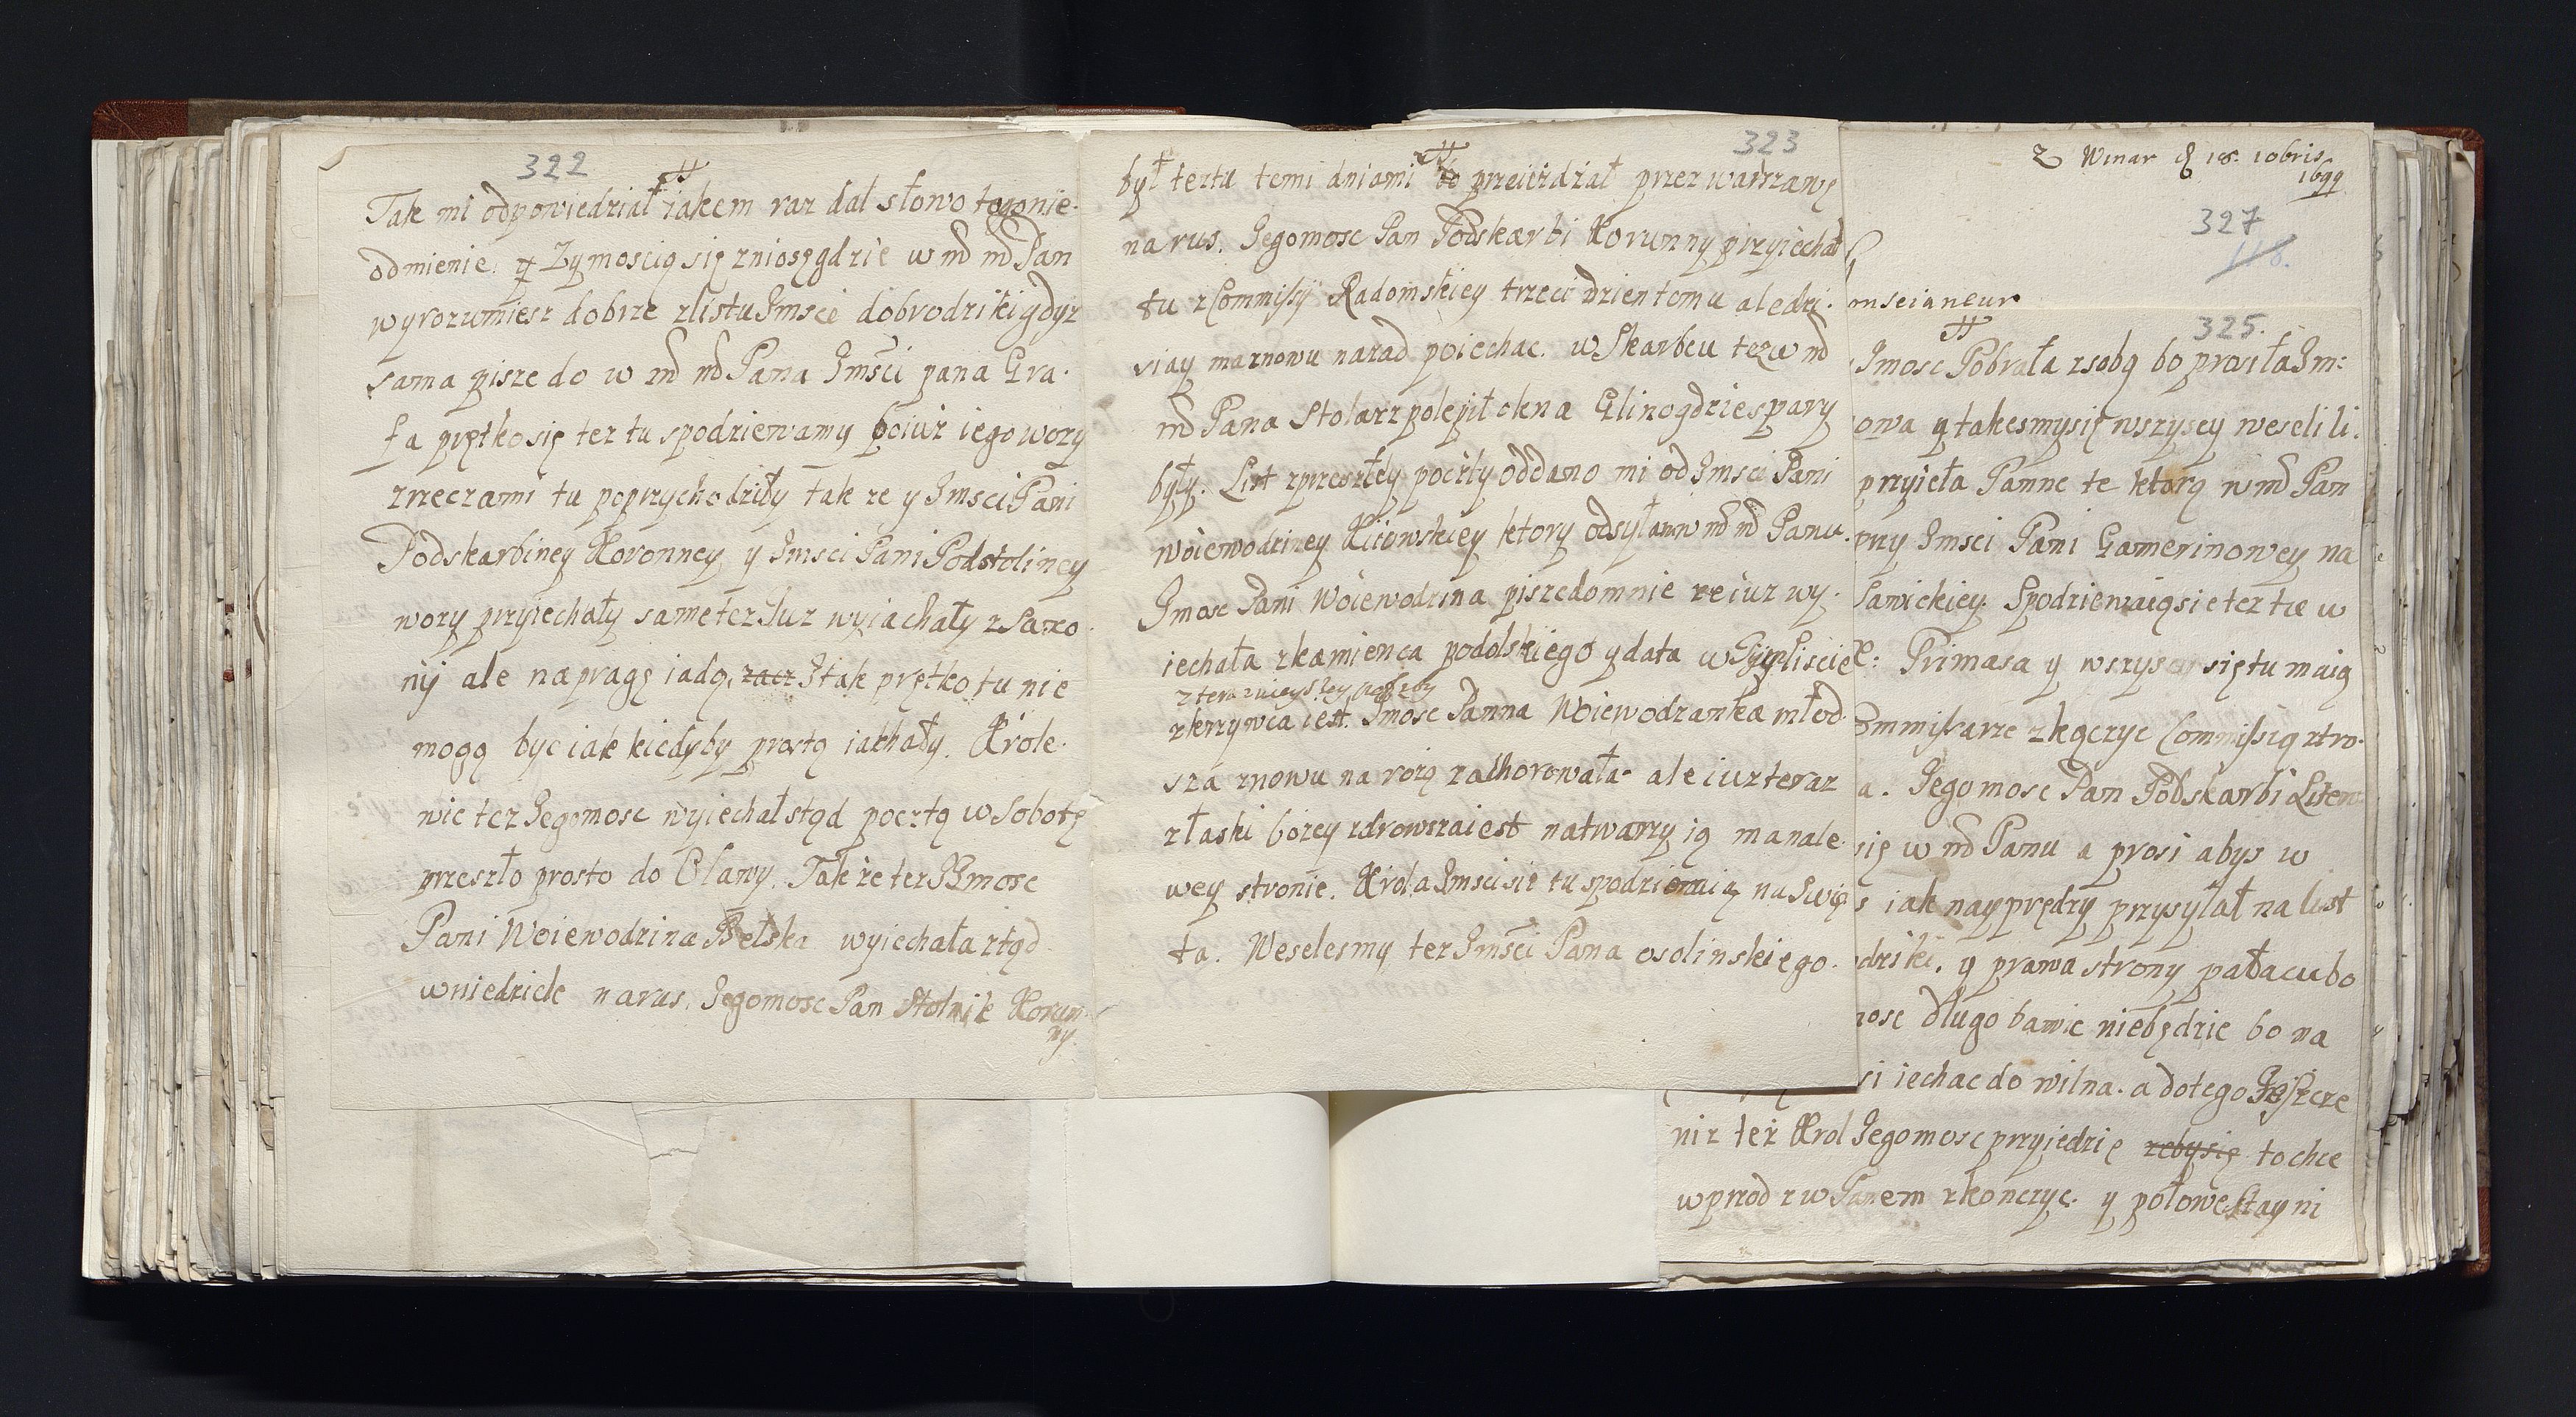 322
#
Tak mi odpowiedział iakem raz dal słowo togonie.
odmienie. y Zymoscią się zniosę gdzie w md md Pan
wyrozumiesz dobrze zlistu Imsci dobrodziki gdyz
sama pisze do w md md Pana Imsci pana Gra.
fa prętko się tez tu spodziewamy bo iuz iego wozy
zrzeczami tu poprzychodziły tak ze y Imsci Pani
Podskarbiney Koronney y Imsci Pani Podstoliney
wozy przyiechały same tez Iuz wyiachały z Saxo.
nij ale na pragę iadą. zacz Itak prętko tu nie
mogą byc iak kiedyby prostą iachały. Krole.
wic tez Iegomosc wyiechał stąd pocztą w Sobotę
przeszło prosto do Oławy. Takze tez IImosc
Pani Woiewodzina Bełska wyiechała ztąd
wniedziele narus. Iegomosc Pan Stolnik Korun.
ny.
323
#
był teztu temi dniami bo przeiezdzał przez warszawę
narus. Iegomosc Pan Podskarbi Korunny przyiechał
tu z Commisij Radomskiey trzeci dzien temu ale dzi.
siay maznowu nazad poiechac. w Skarbcu tez w md
md Pana Stolarz polepił okna Gliną gdzie spary
były. List zprzeszłey poczty oddano mi od Imsci Pani
woiewodziney Kiiowskiey ktory odsyłam w md md Panu.
Imosc Pani Woiewodzina pisze do mnie ze iuz wy.
iechała zkamienca podolskiego y data w
zteraznieyszey poczty
zkrzywca iest. Imosc Panna Woiewodzanka młod.
sza znowu na rozą zachorowała. ale iuz teraz
złaski bozey zdrowsza iest natwarzy ią ma nale.
wey stronie. Krola Imsci sie tu spodziewaią na Swię
ta. Weselesmy tez Imsci Pana osolinskiego.
Z Winar d 18. 10bris
1699
327
118.
onseianeur
325.
#
Imosc Pobrała zsobą bo prosiła Im:
owa y takesmysię wszyscy weselili.
przyieła Panne te ktorą w md Pan
przy Imsci Pani Gamerinowey na
Sawickiey. Spodziewaiąsie tez tu w
X: Primasa y wszyscy się tu maią
ommissarze zkączyc Commissią ztro.
a. Iegomosc Pan Podskarbi Litew
się w md Panu a prosi abys w
s iak nayprędzy przysyłał na list
odziki. y prawa strony pałacu bo
mosc długo bawic niebędzie bo na
si iechac do wilna. a dotego Ieszcze
niz tez Krol Iegomosc przyiedzie zebysię to chce
wprzod z w Panem zkonczyc. y połowe Stayni